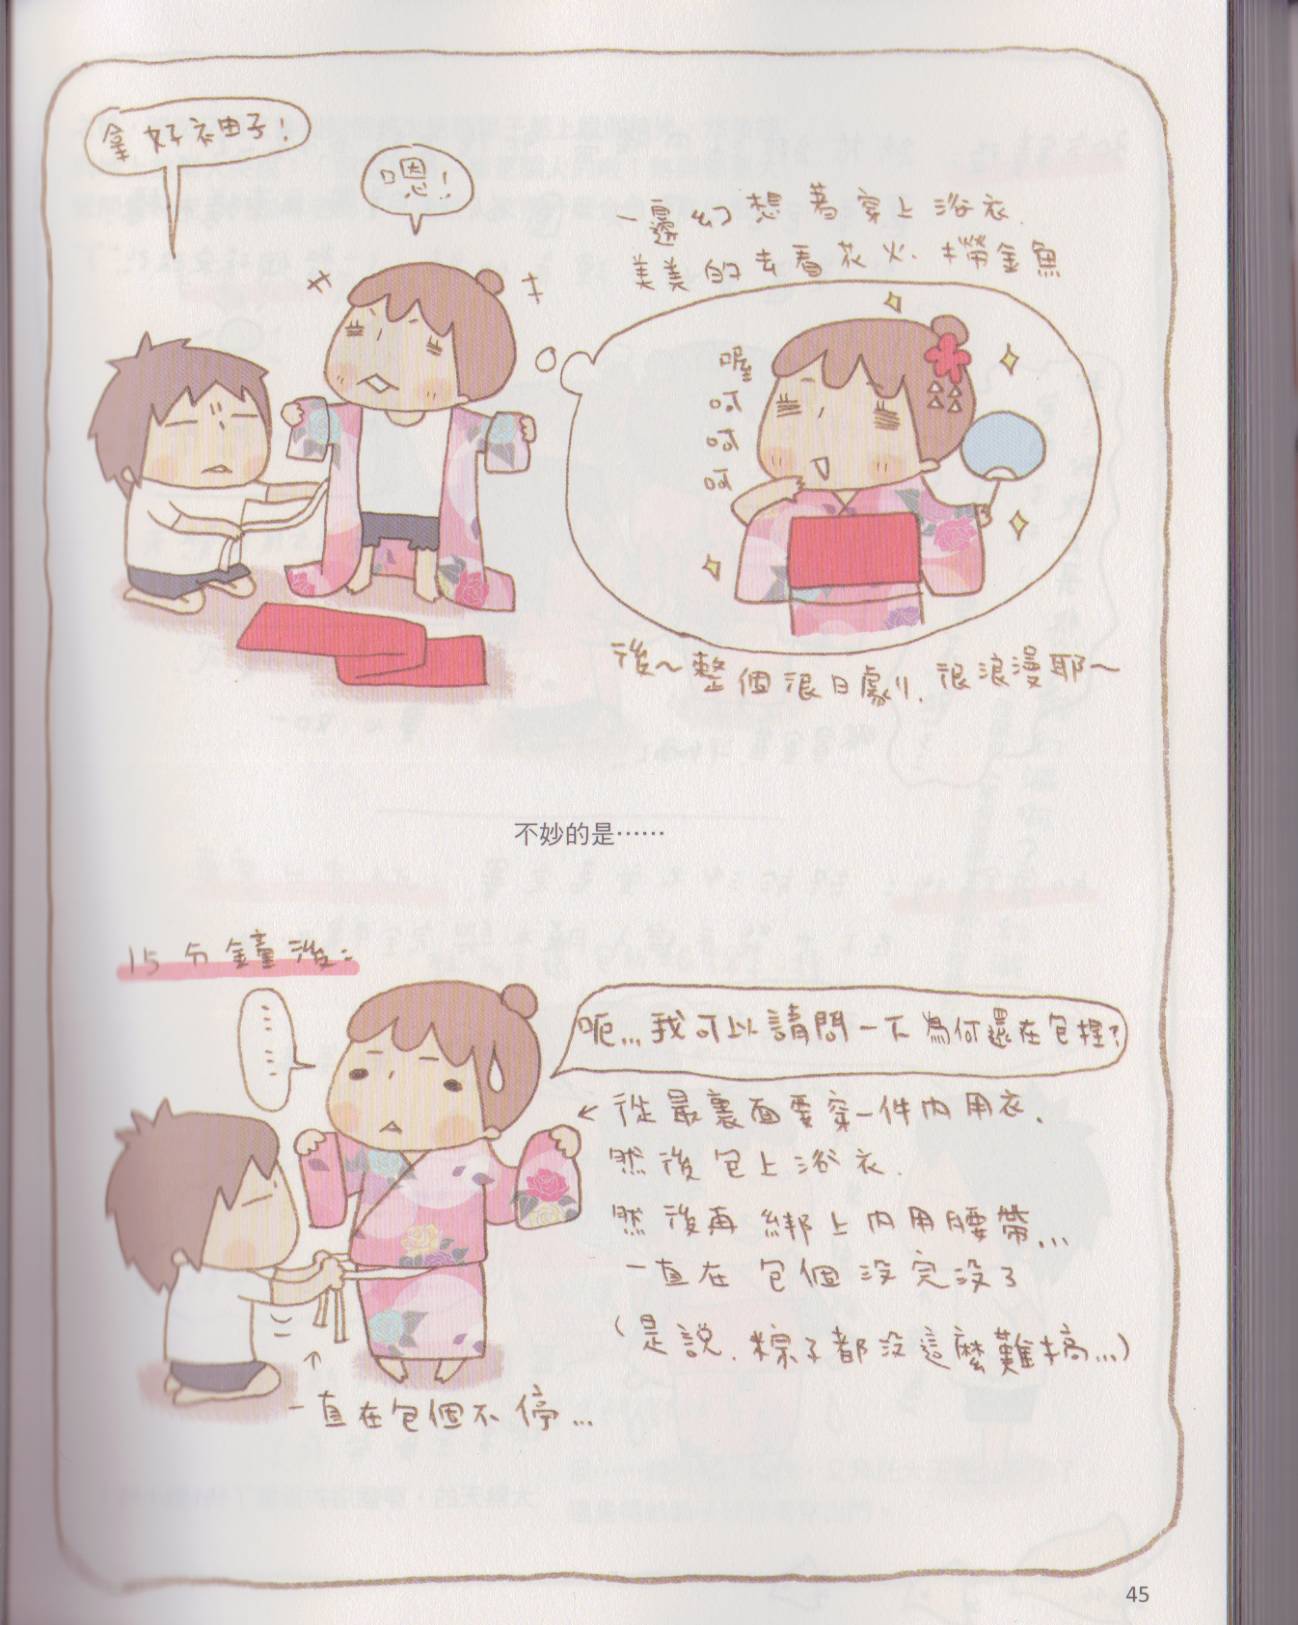 拿好衣袖子!
嗯!
一邊幻想著穿上浴衣.
美美的去看花火.撈金魚
喔
呵
呵
呵
後~整個很日劇.很浪漫耶~
不妙的是……
15分鐘後:
……
呃...我可以請問一下為何還在包捏?
從最裏面要穿一件內用衣.
然後包上浴衣.
然後再綁上內用腰帶...
一直在包個沒完沒了
(是說.粽子都沒這麼難搞...)
一直在包個不停...
45